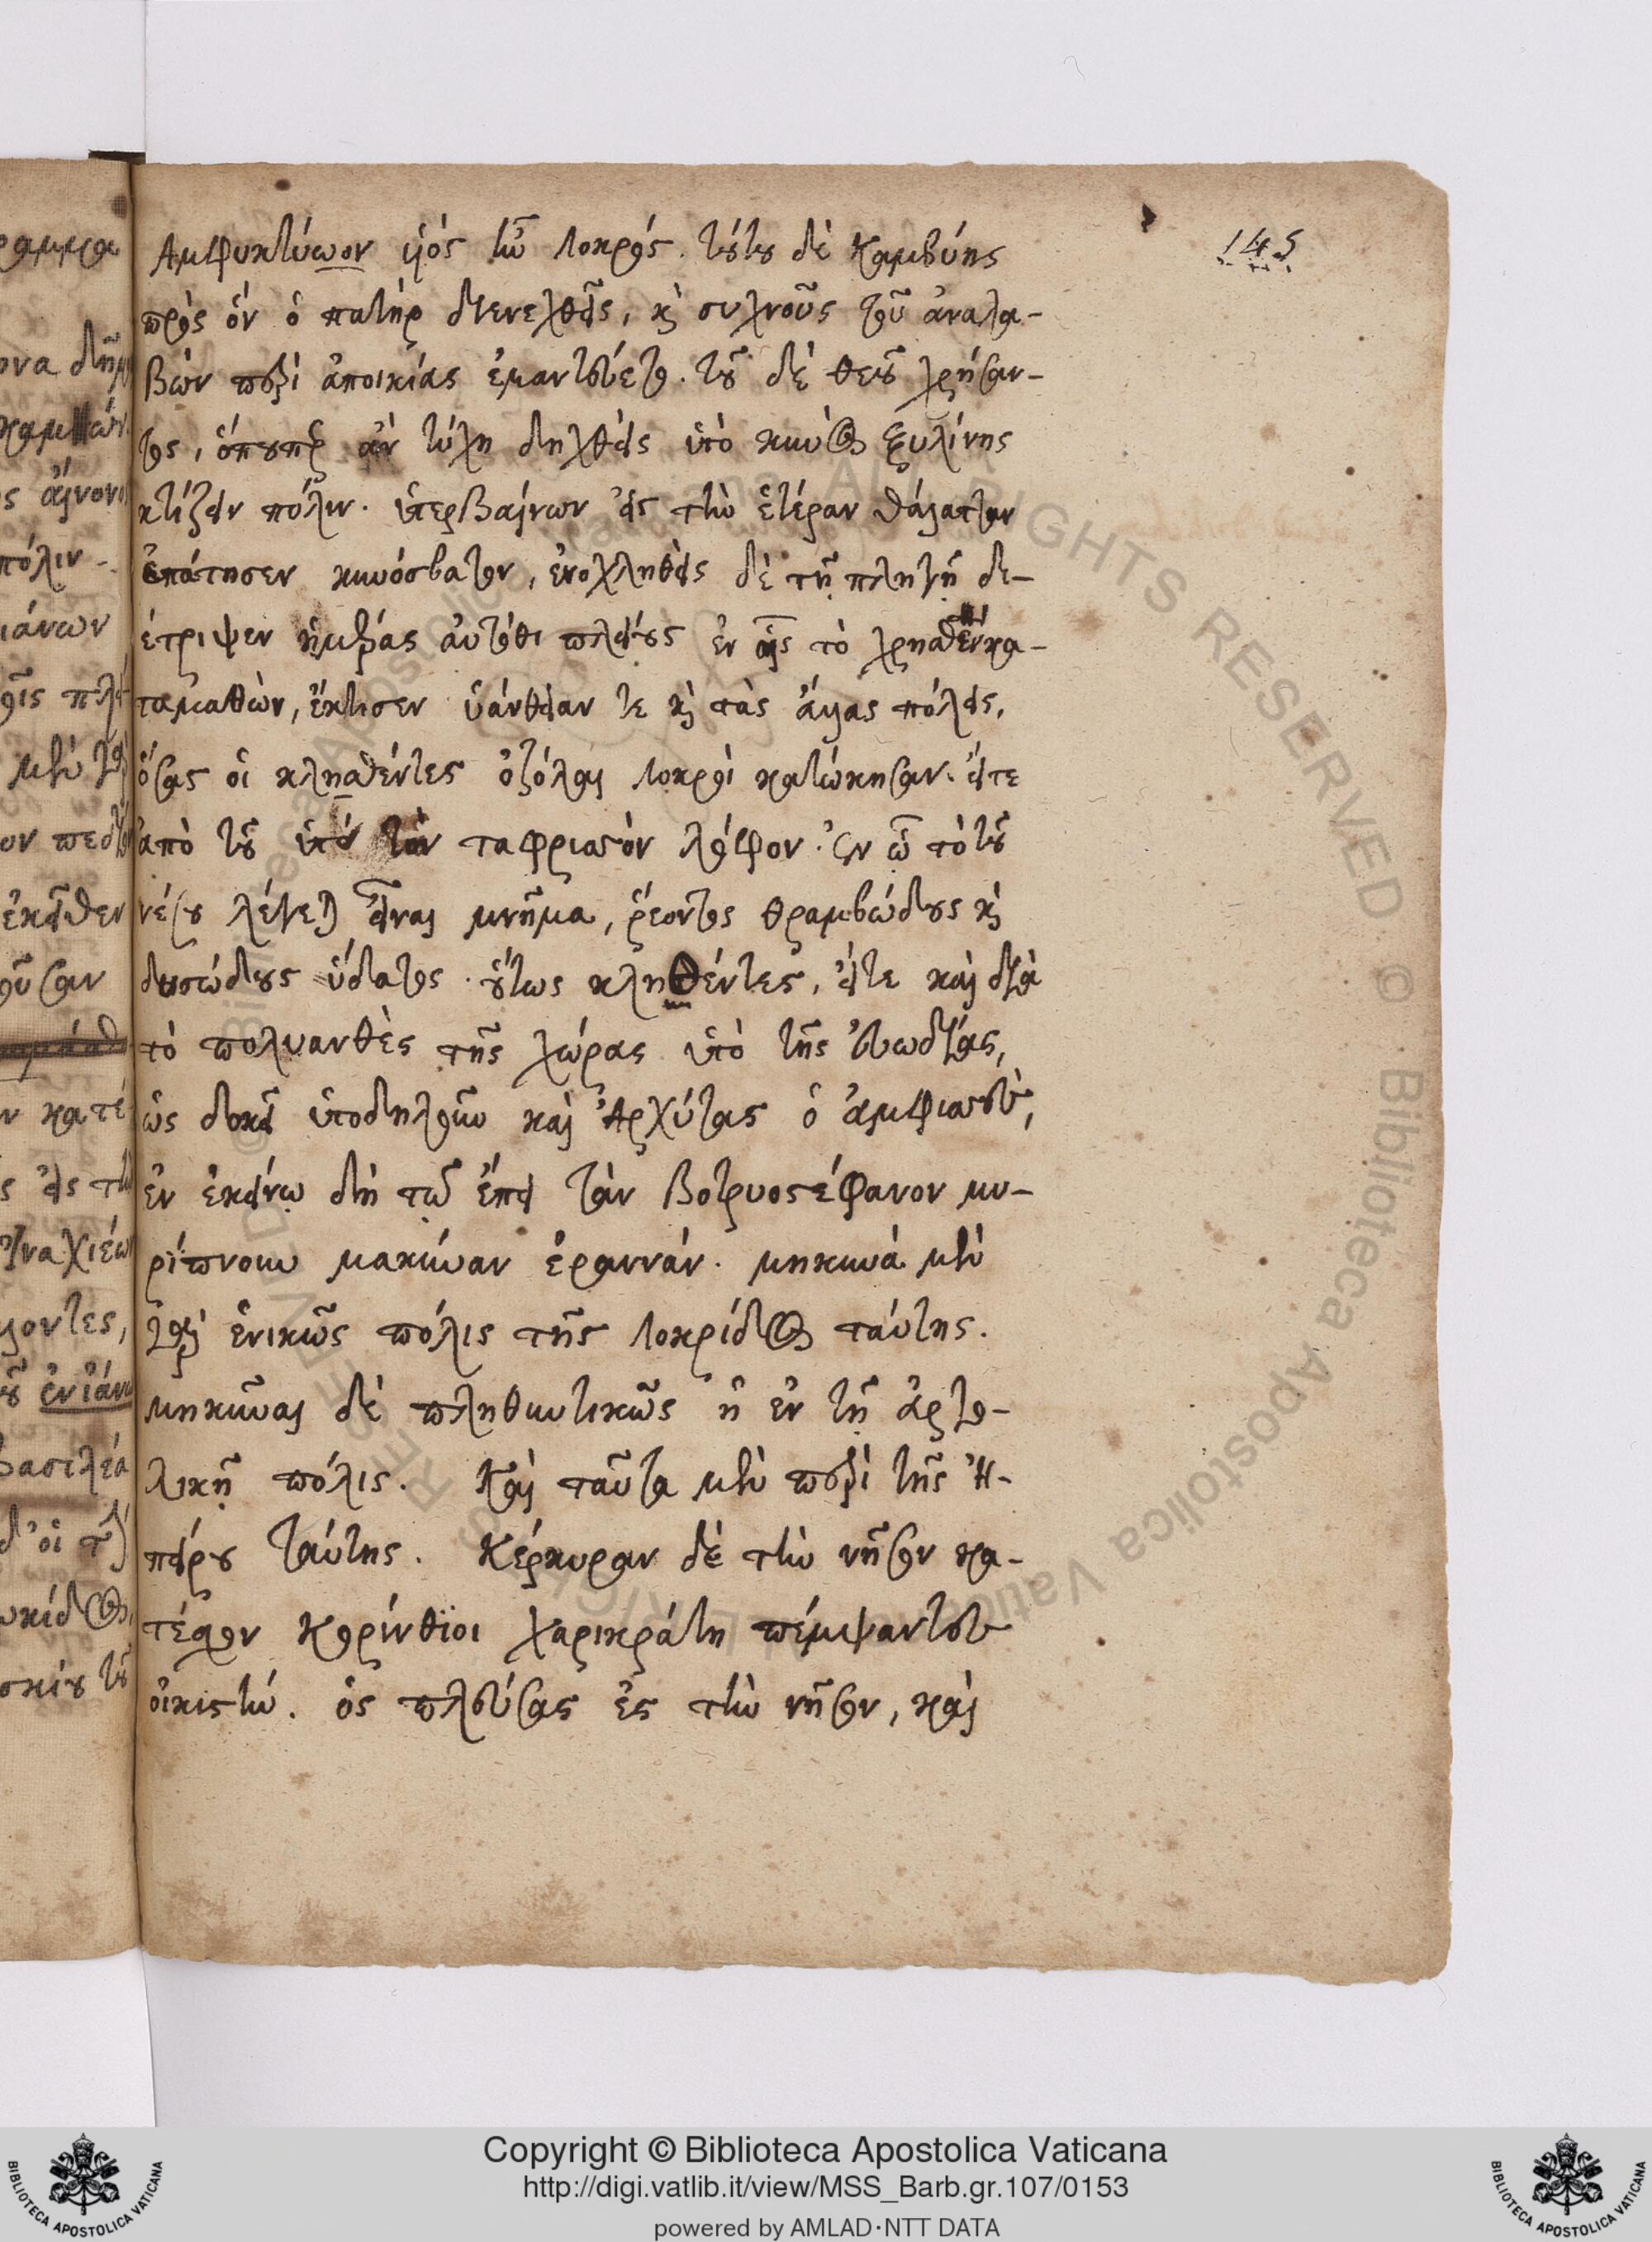 145
Ἀμφυκτύωον υἱὸς ἦν Λοκρός. τούτου δὲ Καμβύσης
πρὸς ὃν ὁ πατὴρ διενεχθεὶς, καὶ συχνοὺς τοῦ ἀναλα-
βὼν περὶ ἀποικίας ἐμαντεύετο. τοῦ δὲ θεοῦ χρήσαν-
τος, ὅπουπερ ἂν τύχῃ δηχθεὶς ὑπὸ κυνὸς ξυλίνης
κτίζειν πόλιν. ὑπερβαίνων εἰς τὴν ἑτέραν θάλατταν
ἐπάτησεν κυνόσβατον, ἐνοχληθεὶς δὲ τῇ πληγῇ δι-
έτριψεν ἡμέρας αὐτόθι πλείους ἐν αἷς τὸ χρησθὲν κα-
ταμαθὼν, ἔκτισεν ὑάνθειαν τε καὶ τὰς ἄλλας πόλεις,
ὅσας οἱ κλησθέντες ὀζόλαι Λοκροὶ κατώκησαν. εἴτε
ἀπὸ τοῦ ὑπὸ τὸν ταφριασὸν λόφον. ἐν ᾧ τὸ τοῦ
νέσου λέγεται εἶναι μνῆμα, ῥέοντος θραμβώδους καὶ
δυσώδους ὕδατος. οὕτως κληθέντες, εἴτε καὶ διὰ
τὸ πολυανθὲς τῆς χώρας ὑπὸ τῆς εὐωδίας,
ὡς δοκεῖ ὑποδηλοῦν καὶ Ἀρχύτας ὁ ἀμφισσεὺς,
ἐν ἐκείνῳ δὴ τῷ ἔπει τὰν βοτρυοστέφανον μυ-
ρίπνουν μακύναν ἐραννάν. μηκυνά μὲν
γὰρ ἑνικῶς πόλις τῆς Λοκρίδος ταύτης.
μηκῦναι δὲ πληθυντικῶς ἡ ἐν τῇ ἀρτο-
λικῇ πόλις. Καὶ ταῦτα μὲν περὶ τῆς Ἠ-
πείρου ταύτης. Κέρκυραν δὲ τὴν νῆσον κα-
τέσχον Κορίνθιοι χαρικράτη πέμψαντες
οἰκιστὴν. ὃς πλεύσας ἐς τὴν νῆσον, καὶ
Copyright © Biblioteca Apostolica Vaticana
http://digi.vatlib.it/view/MSS_Barb.gr.107/0153
powered by AMLAD·NTT DATA